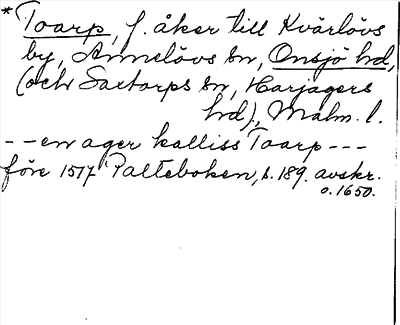 *Toarp, f. åker till Kvärlövs
by, Annelövs sn, Onsjö hd,
(och Saxtorps sn, Harjagers
hd), Malm. l.
--en ager kalliss Toarp---
före 1517 Palteboken, s. 189. avskr.
o. 1650.